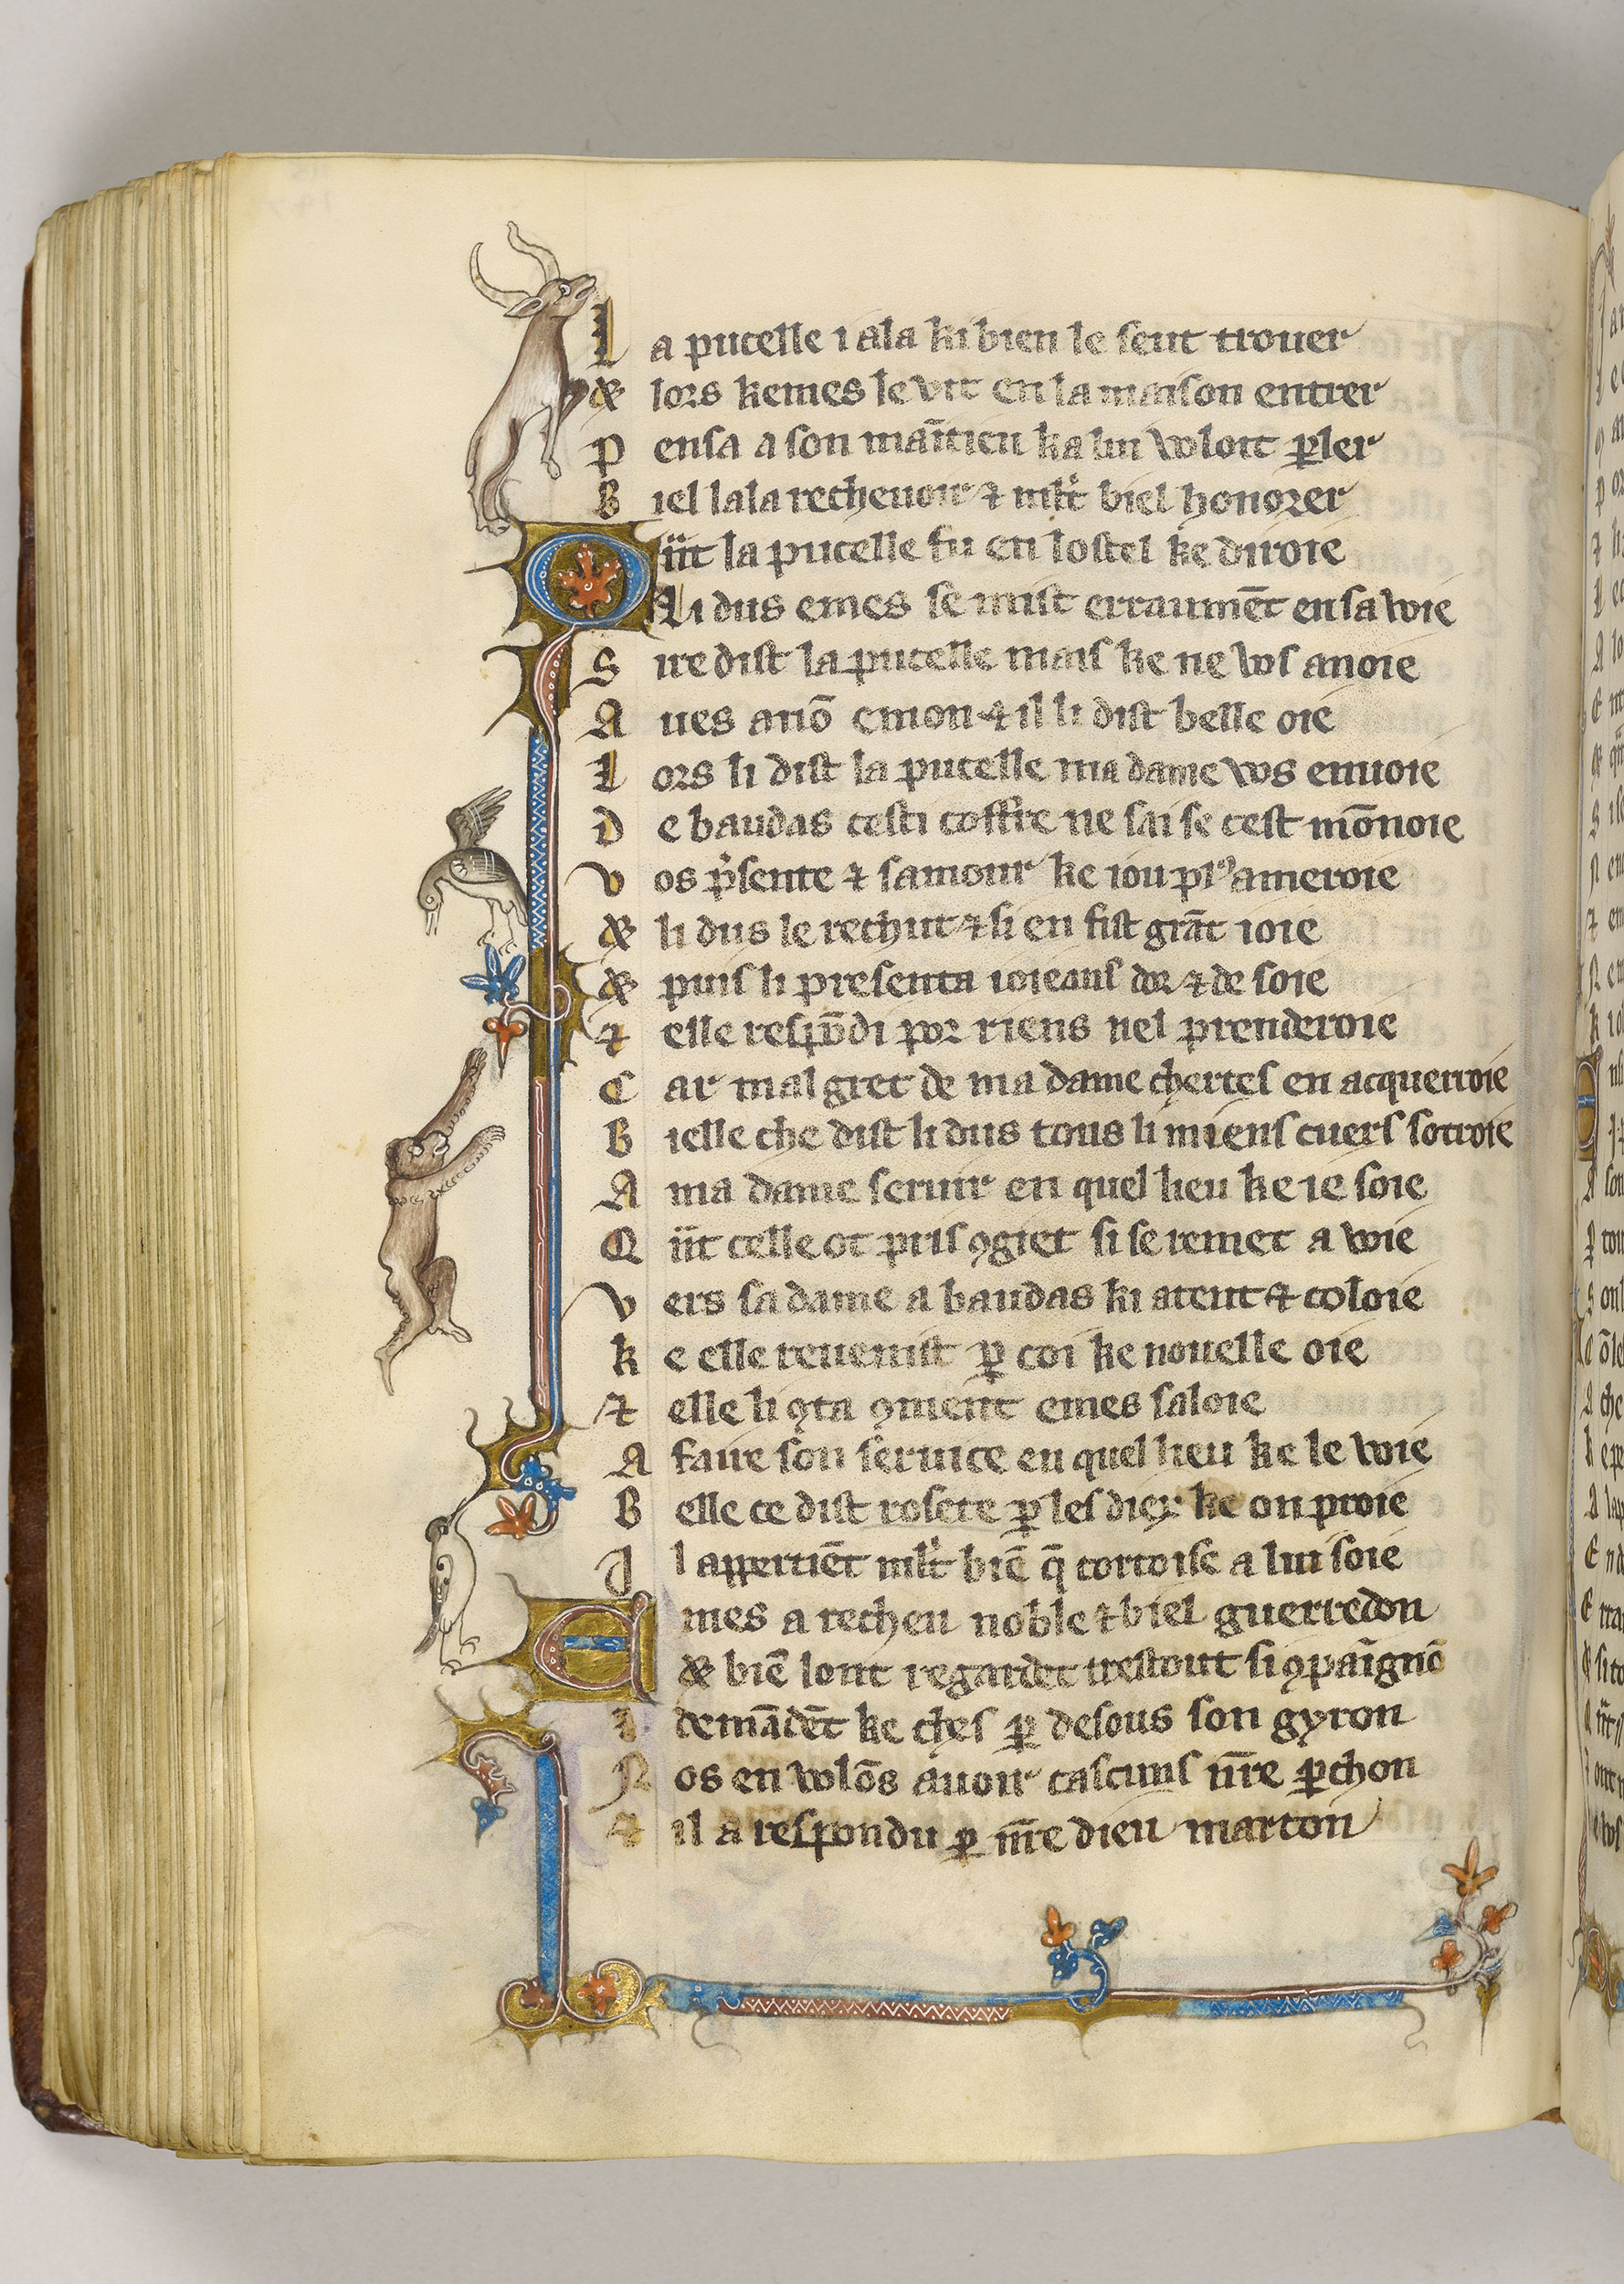 La pucelle i ala ki bien le seut trouer
& lors kemes le vit en la maison entrer
Pensa a son mait̄ieu ka lui woloit ꝑler
Biel lala recheuoir ⁊ ml̄t biel honorer
Qn̄t la pucelle fu en lostel ke diroie
Li dus emes se mist erraumēt en sa woie
Sire dist la pucelle mais ke ne wos anoie
Aues anō emon ⁊ il li dist belle oie
Lors li dist la pucelle ma dame wos enuoie
De baudas cesti coffre ne sai se cest mōnoie
Vos p̾sente ⁊ samour ke iou plꝰ ameroie
& li dus le rechut ⁊ si en fist grāt ioie
& puis li presenta ioieaus dor ⁊ de soie
⁊ elle respōdi por riens nel prenderoie
Car mal gret de ma dame chertes en acquerroie
Bielle che dist li dus tous li miens cuers sotroie
A ma dame seruir en quel lieu ke ie soie
Qn̄t celle ot pris ꝯgiet si se remet a woie
Vers sa dame a baudas ki atent ⁊ coloie
Ke elle reuenist ꝑ coi ke nouelle oie
⁊ elle li ꝯta ꝯment emes saloie
A faire son seruice en quel lieu ke le woie
Belle ce dist rosete ꝑ les diex ke on proie
Il appertiēt ml̄t biē q̄ cortoise a lui soie
Emes a recheu noble ⁊ biel guerredon
& biē lont regardet trestout si ꝯpaignō
I demādēt ke ches ꝑ desous son gyron
Nos en wolōs auoir cascuns nr̄e ꝑchon
⁊ il a respondu ꝑ mr̄e dieu marton